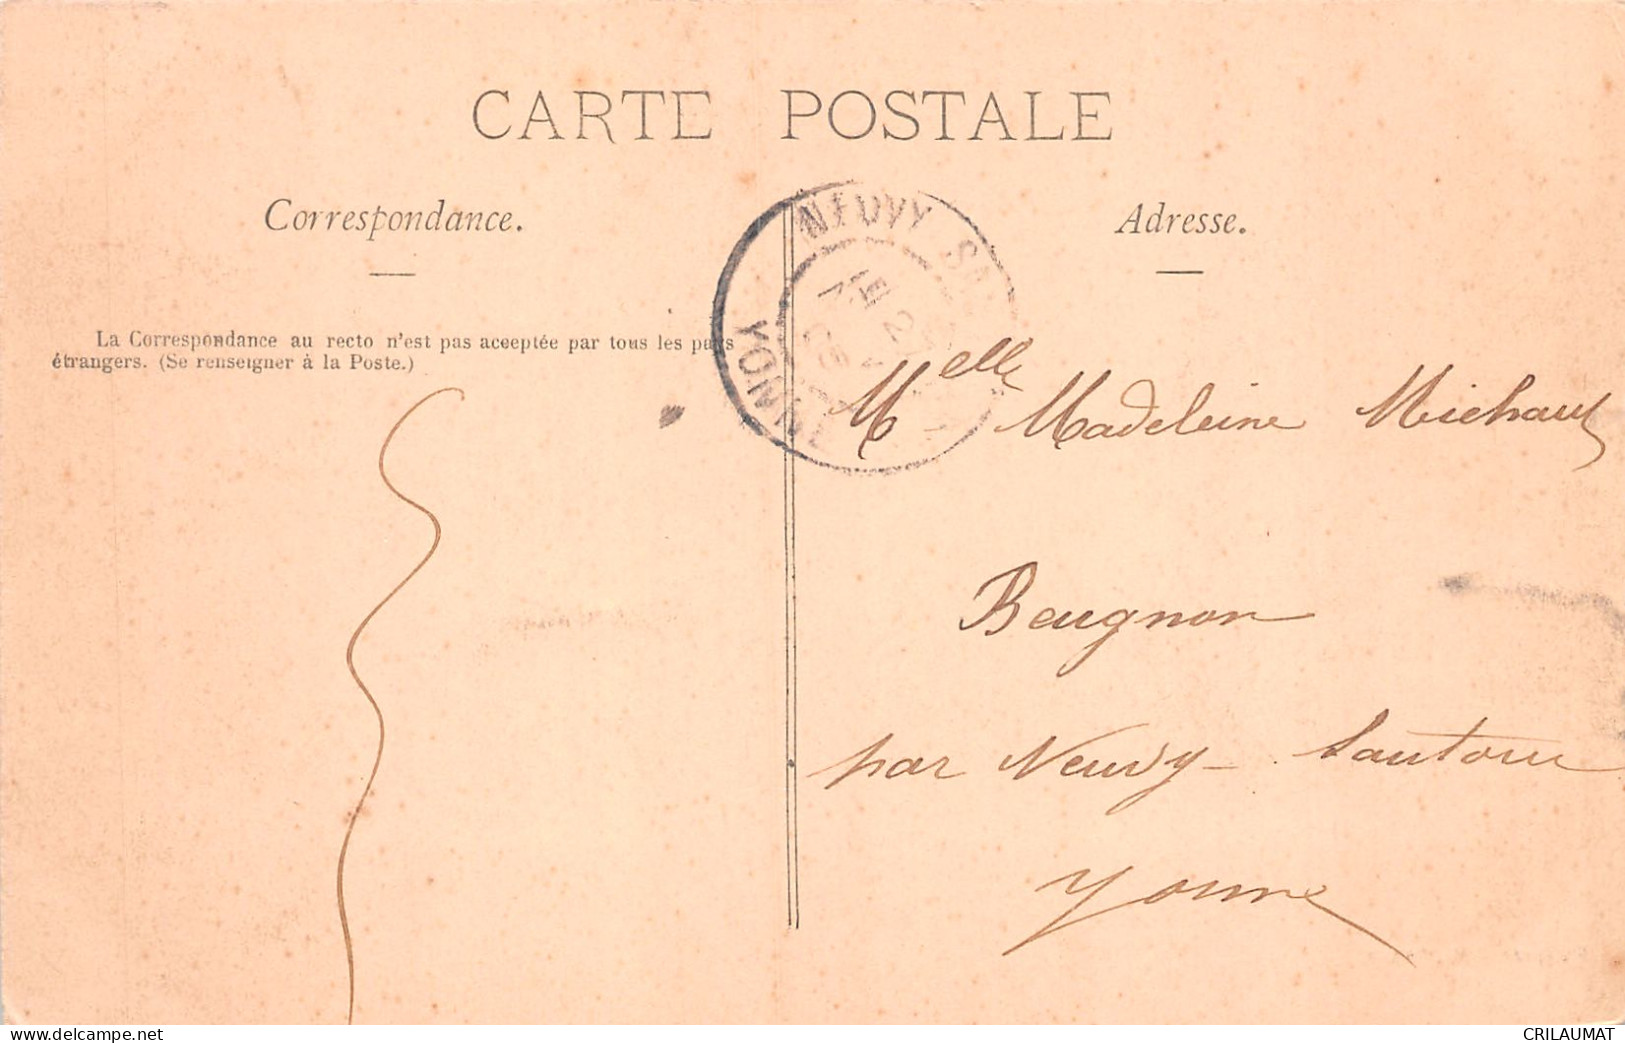 CARTE POSTALE
Correspondance.
Adresse.
La Correspondance au recto n'est pas acceptée par tous les pays
étrangers. (Se renseigner à la Poste.)
NEUVY
YONNE
Melle Madeleine Michaut
Beugnon
par Neuvy - Sautour
Yonne
www.delcampe.net
CRILAUMAT